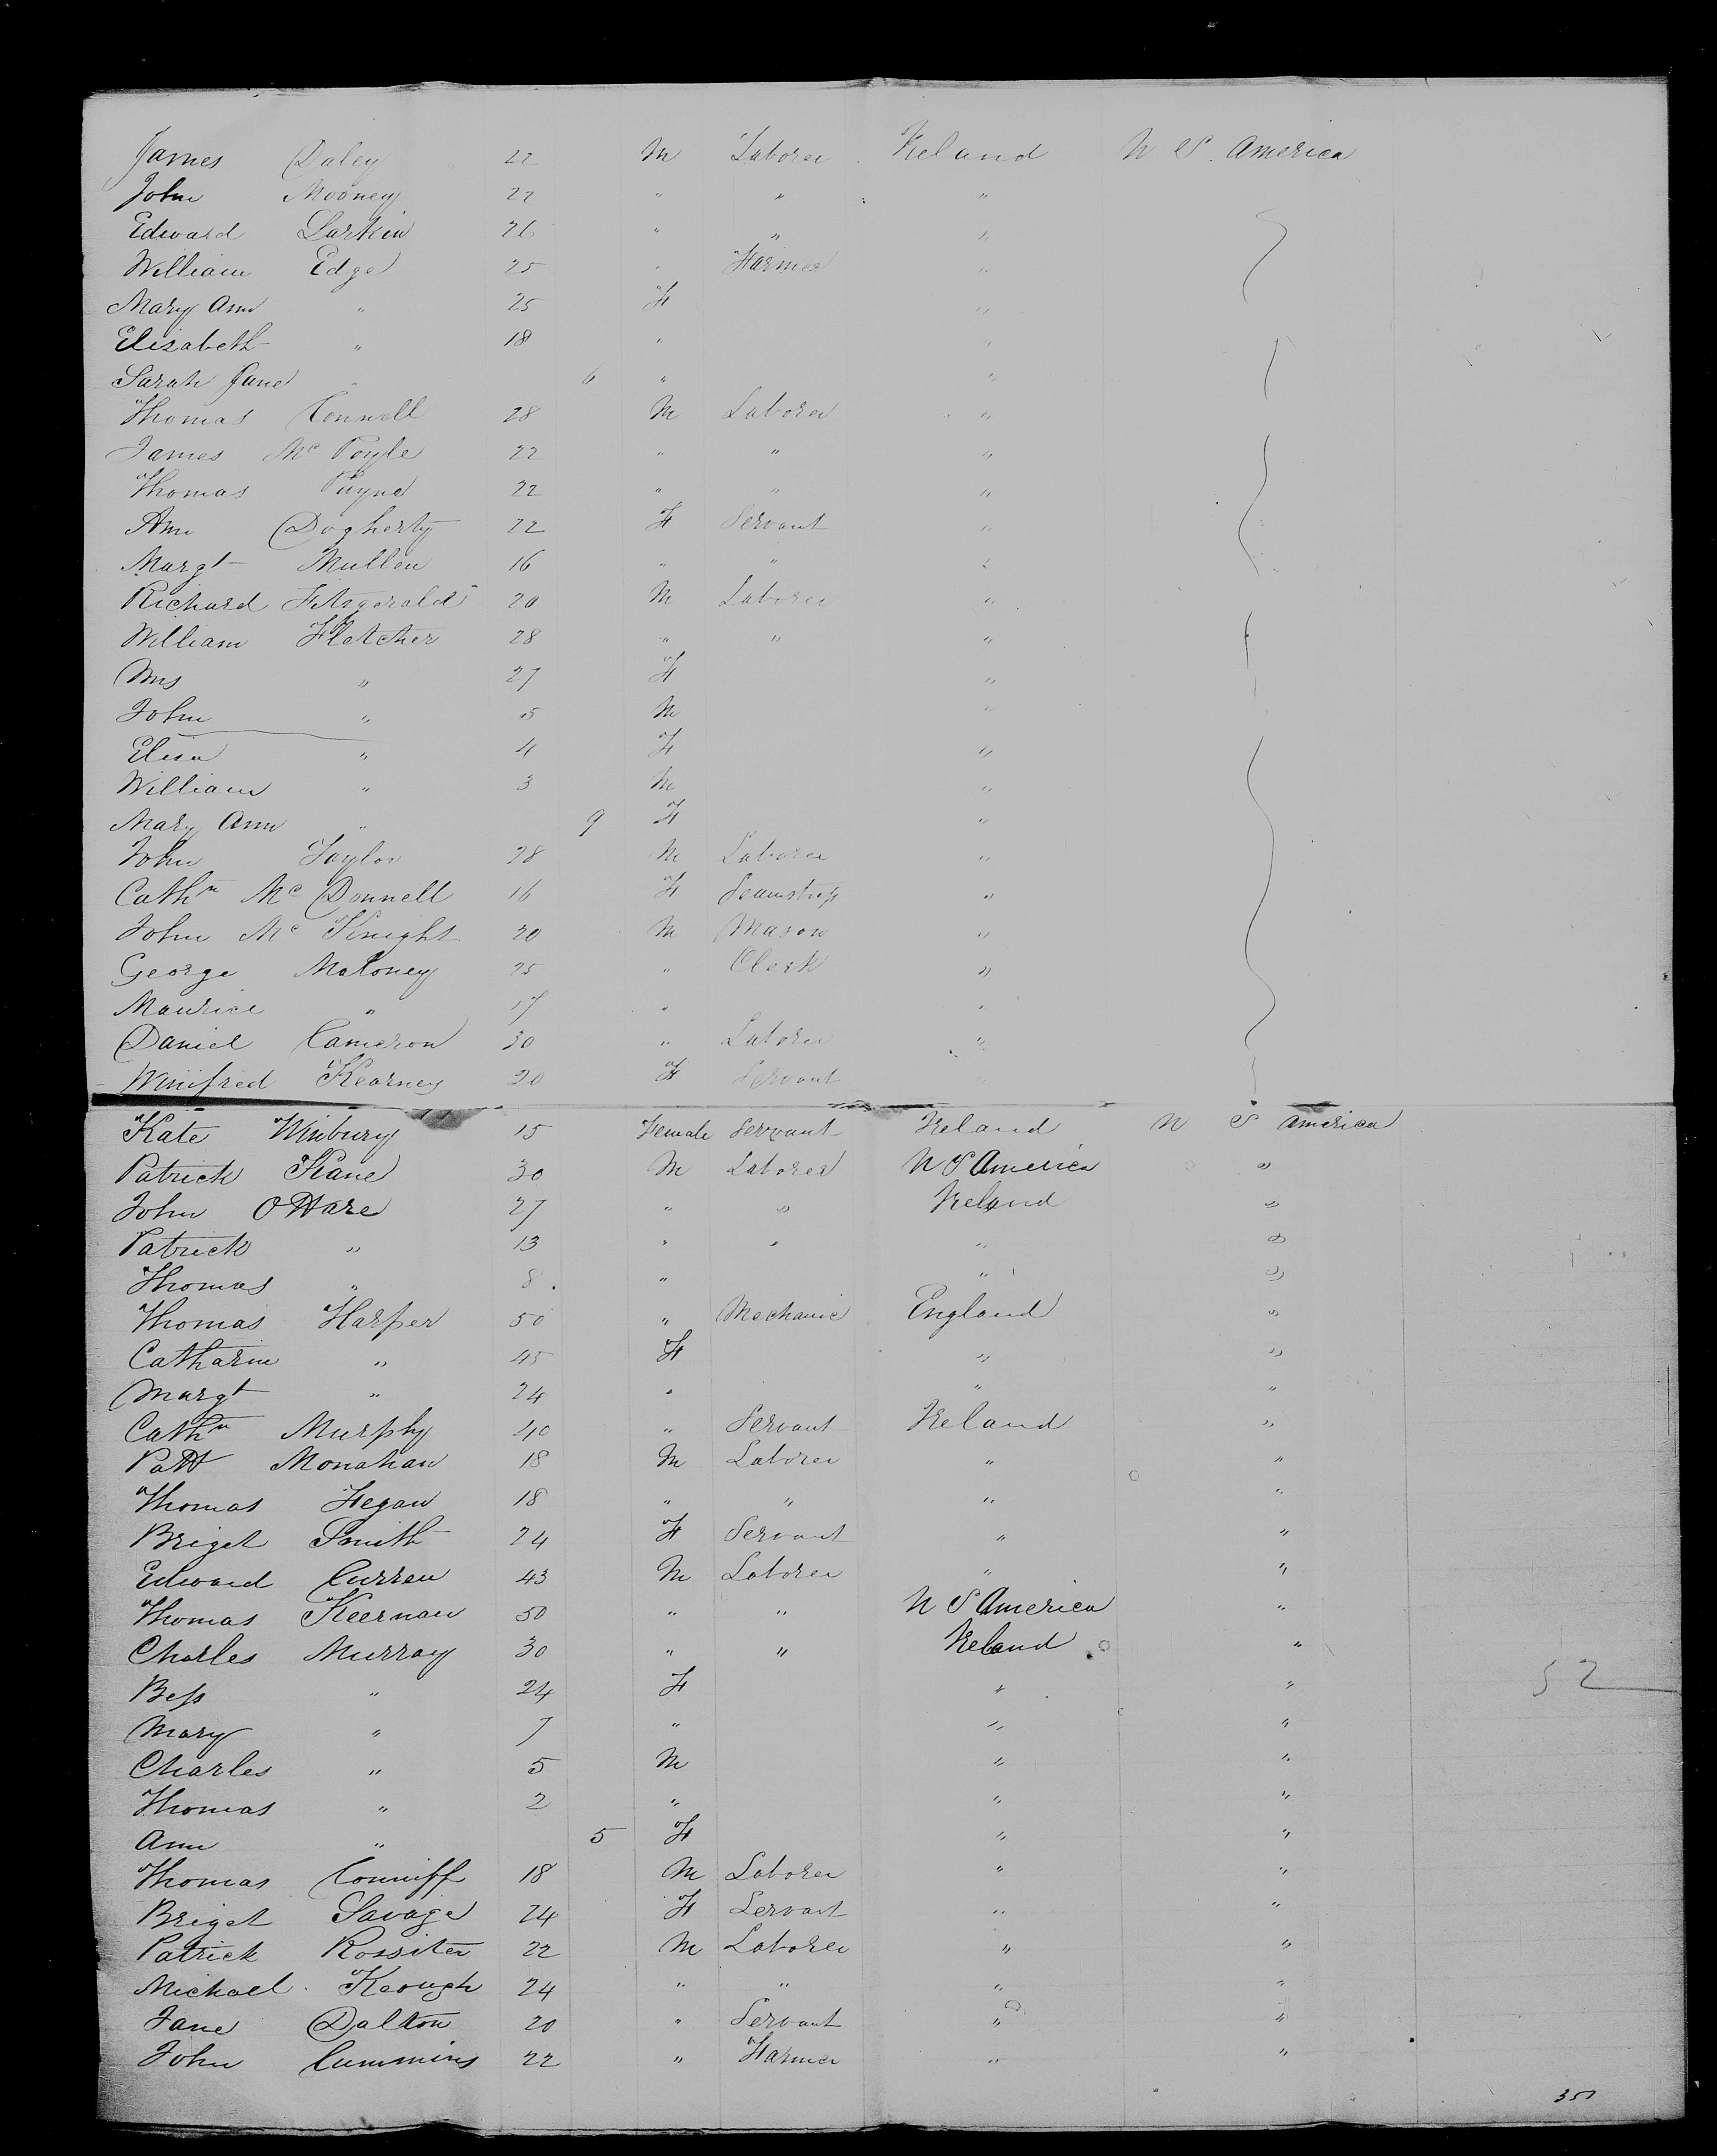 James Daley 22 M Laborer Ireland U S. America
John Mooney 22 " " "
Edward Larkin 26 " " "
William Edge 25 " Farmer "
Mary Ann " 25 F "
Elizabeth " 18 " "
Sarah Jane " 6 " "
Thomas Connell 28 M Laborer "
James Mc Poyle 22 " " "
Thomas Payne 22 " " "
Ann Dogherty 22 F Servant "
Margt Mullen 16 " " "
Richard Fitzgerald 20 M Laborer "
William Fletcher 28 " " "
Mrs " 27 F "
John " 5 M "
Eliza " 4 F "
William " 3 M "
Mary Ann " 9 F "
John Taylor 28 M Laborer "
Cathn Mc Donnell 16 F Seamstress "
John Mc Knight 20 M Mason "
George Maloney 25 " Clerk "
Maurice " 17 " "
Daniel Cameron 30 " Laborer "
Winifred Kearney 20 F Servant "
Kate Winbury 15 Female Servant Ireland U S America
Patrick Kane 30 M Laborer U S America "
John O Hare 27 " " Ireland "
Patrick " 13 " " " "
Thomas " 8 " " "
Thomas Harper 50 " Mechanic England "
Catharin " 45 F " "
Margt " 24 " " "
Cathn Murphy 40 " Servant Ireland "
Patt Monahan 18 M Laborer " "
Thomas Fegan 18 " " " "
Briget Smith 24 F Servant " "
Edward Curren 43 M Laborer " "
Thomas Keernan 50 " " U S America "
Charles Murray 30 " " Ireland "
Bess " 24 F " " 52
Mary " 7 " " "
Charles " 5 M " "
Thomas " 2 " " "
Ann " 5 F " "
Thomas Conniff 18 M Laborer " "
Briget Savage 24 F Servant " "
Patrick Rossiter 22 M Laborer " "
Michael Keough 24 " " " "
Jane Dalton 20 " Servant " "
John Cummins 22 " Farmer " "